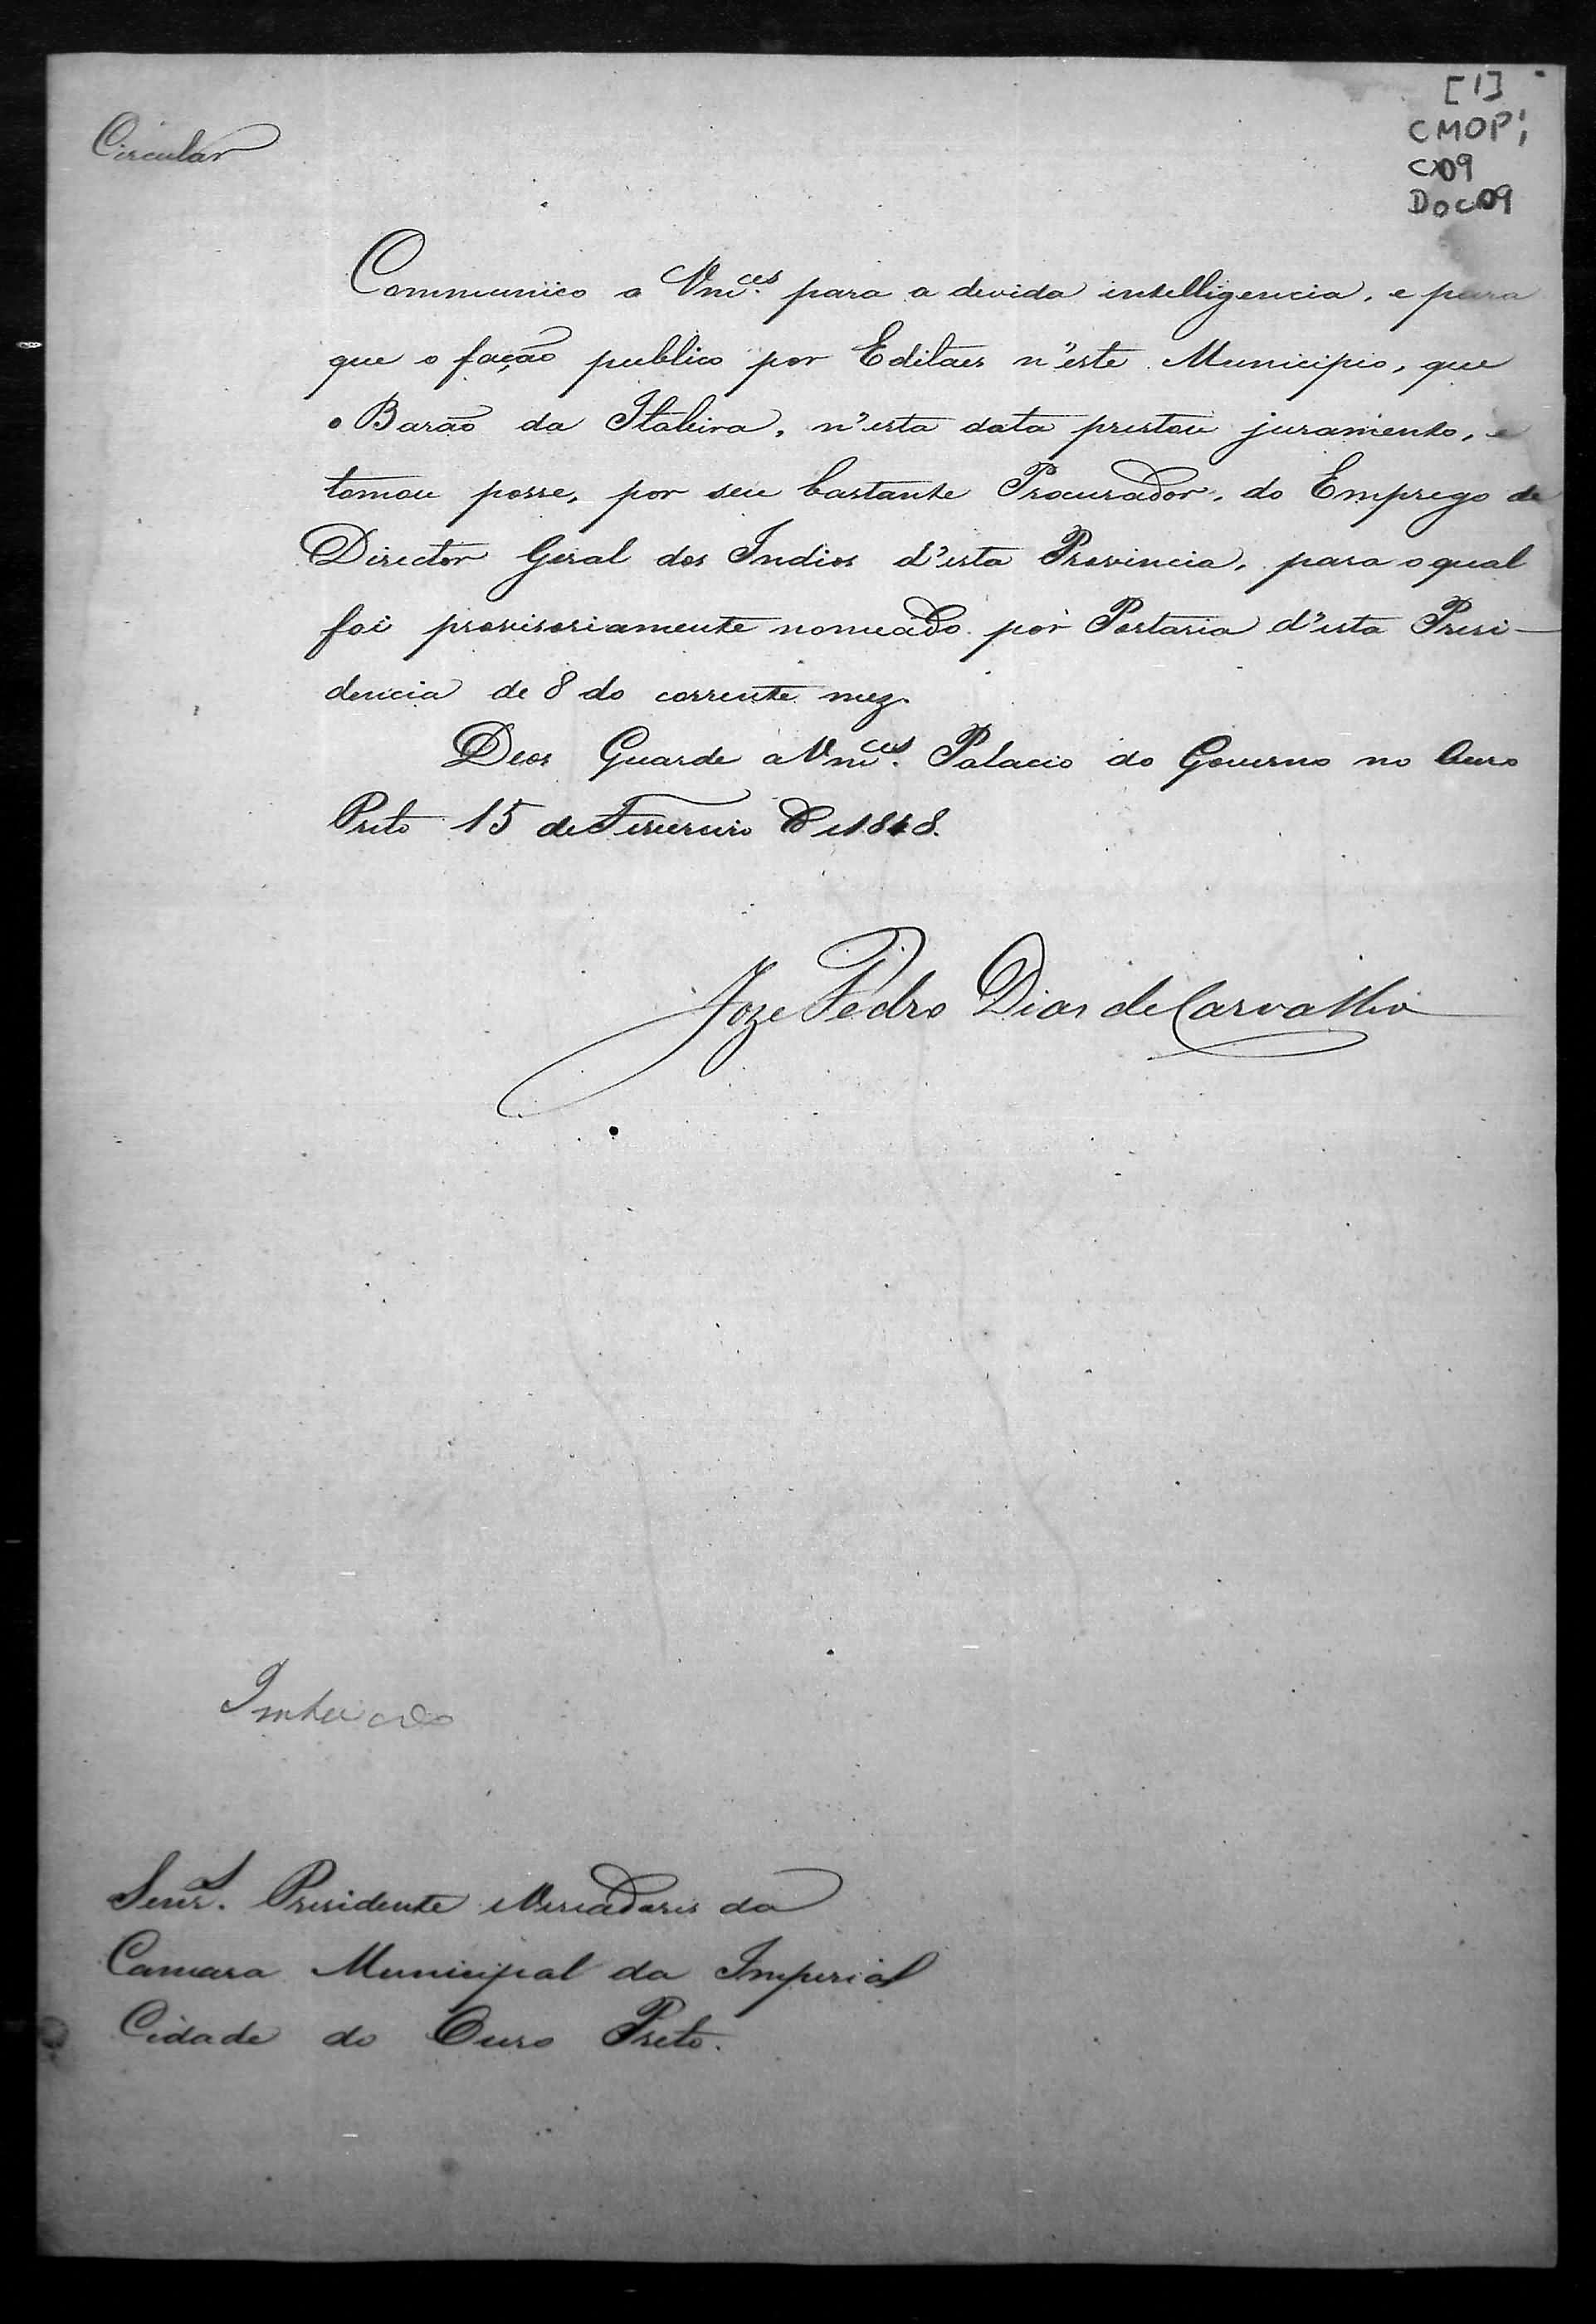 [1]
CMOP;
CX09
Doc09
Circular
Communico a Vm.ces para a devida intelligencia, e para
que o fação publico por Editaes n'este Municipio, que
o Barão da Itabira, n'esta data prestou juramento, e
tomou posse, por seu bastante Procurador, do Emprego de
Director Geral dos Indios d'esta Provincia, para o qual
foi provisoriamente nomeado por Portaria d'esta Presi-
dencia de 8 do corrente mez.
Deos Guarde a Vm.ces Palacio do Governo no Ouro
Preto 15 de Fevereiro de 1848.
Joze Pedro Dias de Carvalho
Senr.s Presidente e Vereadores da
Camara Municipal da Imperial
Cidade do Ouro Preto.